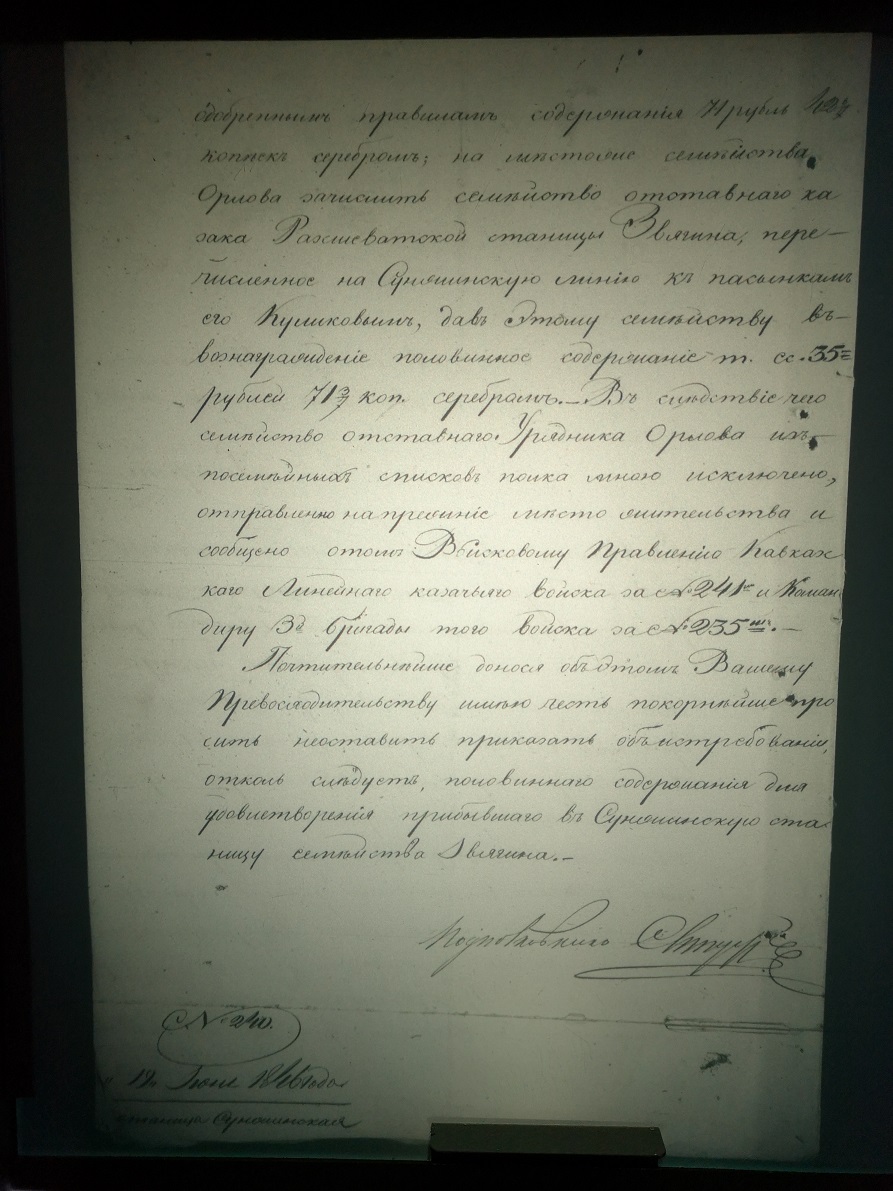 одобреннымъ правиламъ содержанія 71 рубль 42 6/7
копѣекъ серебромъ; на мѣстоже семѣйства
Орлова зачислить семѣйство отставнаго ка
зака Рашеватской станицы Звягина, пере-
численное на Сунженскую линію къ пасынкамъ
его Куликовымъ, давъ этому семѣйству въ-
вознагражденіе половинное содержаніе т. е. 35=
рублей 71 3/7 коп. серебромъ.- Въ слѣдствіе чего
семѣйство отставнаго Урядника Орлова изъ-
посемѣйныхъ списковъ полка мною исключено,
отправленно на прежніе мѣсто жительства и
сообщено отомъ Войсковому Правленію Кавказ
каго Линейнаго казачьяго войска за № 241м и Коман
диру 3й бригады того войска за № 235мъ.-
Почтительнѣйше донося объэтомъ Вашему
Превосходительству имѣю честь покорнѣйше про
сить неоставить приказать объистребованіи,
отколь слѣдуетъ, половиннаго содержанія для
удовлетворенія прибывшаго въ Сунженскую ста
ницу семѣйства Звягина.-
Подполковникъ
№ 240.
19 Іюня 1846 года
станица Сунженская